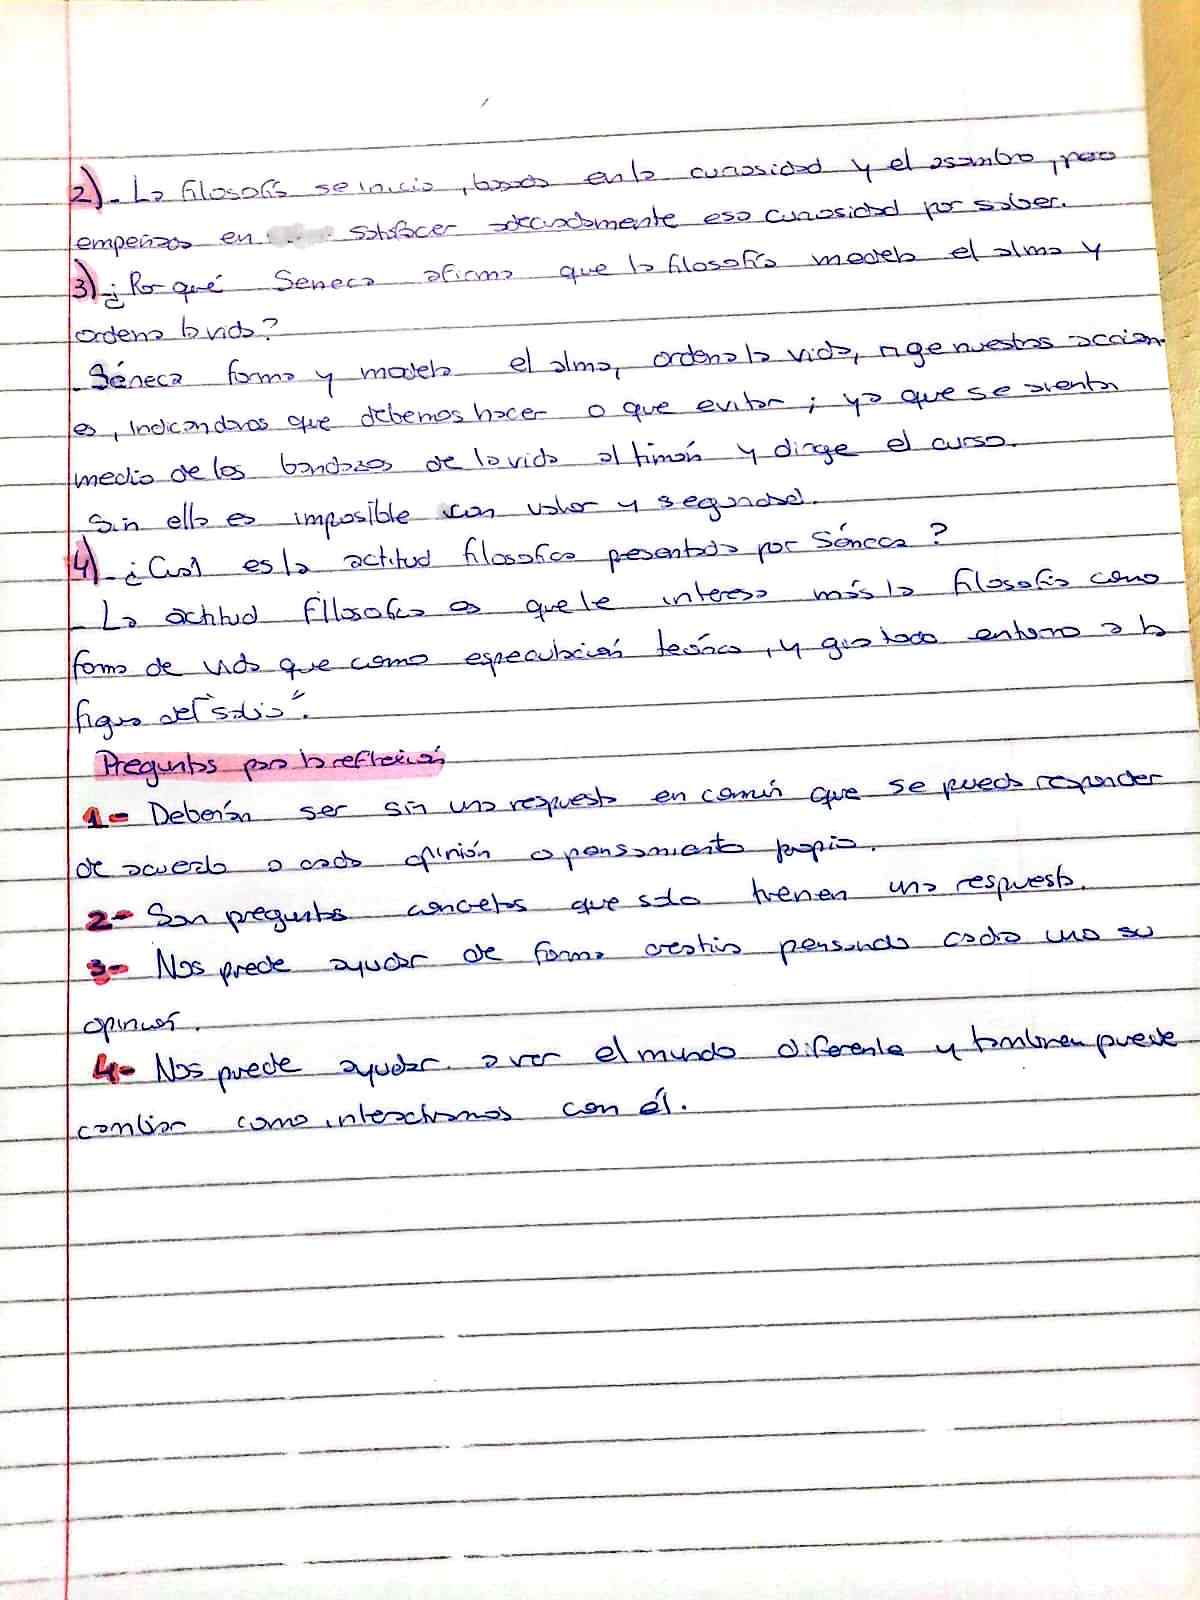 2)- La filosofía se inicia, basada en la curiosidad y el asombro, pero
empeñada en satisfacer adecuadamente esa curiosidad por saber.
3)- ¿Por qué Seneca afirma que la filosofía modela el alma y
ordena la vida?
- Séneca forma y modela el alma, ordena la vida, rige nuestras accion-
es, indicandonos que debemos hacer o que evitar; ya que se sienta
medio de los bandazos de la vida al timón y dirige el curso.
Sin ella es imposible con valor y seguridad.
4)- ¿Cual es la actitud filosofica presentada por Séneca?
- La actitud filosofica es que le interesa más la filosofía como
forma de vida que como especulación teórica, y gira todo entorno a la
figura del "sabio".
Preguntas para la reflexión
1- Deberían ser sin una respuesta en común que se pueda responder
de acuerdo a cada opinión o pensamiento propio.
2- Son preguntas concretas que solo tienen una respuesta.
3- Nos puede ayudar de forma creativa pensando cada uno su
opinión.
4- Nos puede ayudar a ver el mundo diferente y tambien puede
cambiar como interactuamos con él.